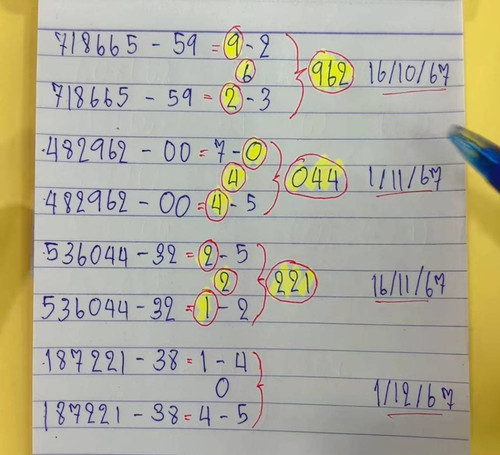 718665 - 59 = 9 - 2
6
718665 - 59 = 2 - 3
962 16/10/67
482962 - 00 = 7 - 0
4
482962 - 00 = 4 - 5
044 1/11/67
536044 - 32 = 2 - 5
2
536044 - 32 = 1 - 2
221 16/11/67
187221 - 38 = 1 - 4
0
187221 - 38 = 4 - 5
1/12/67